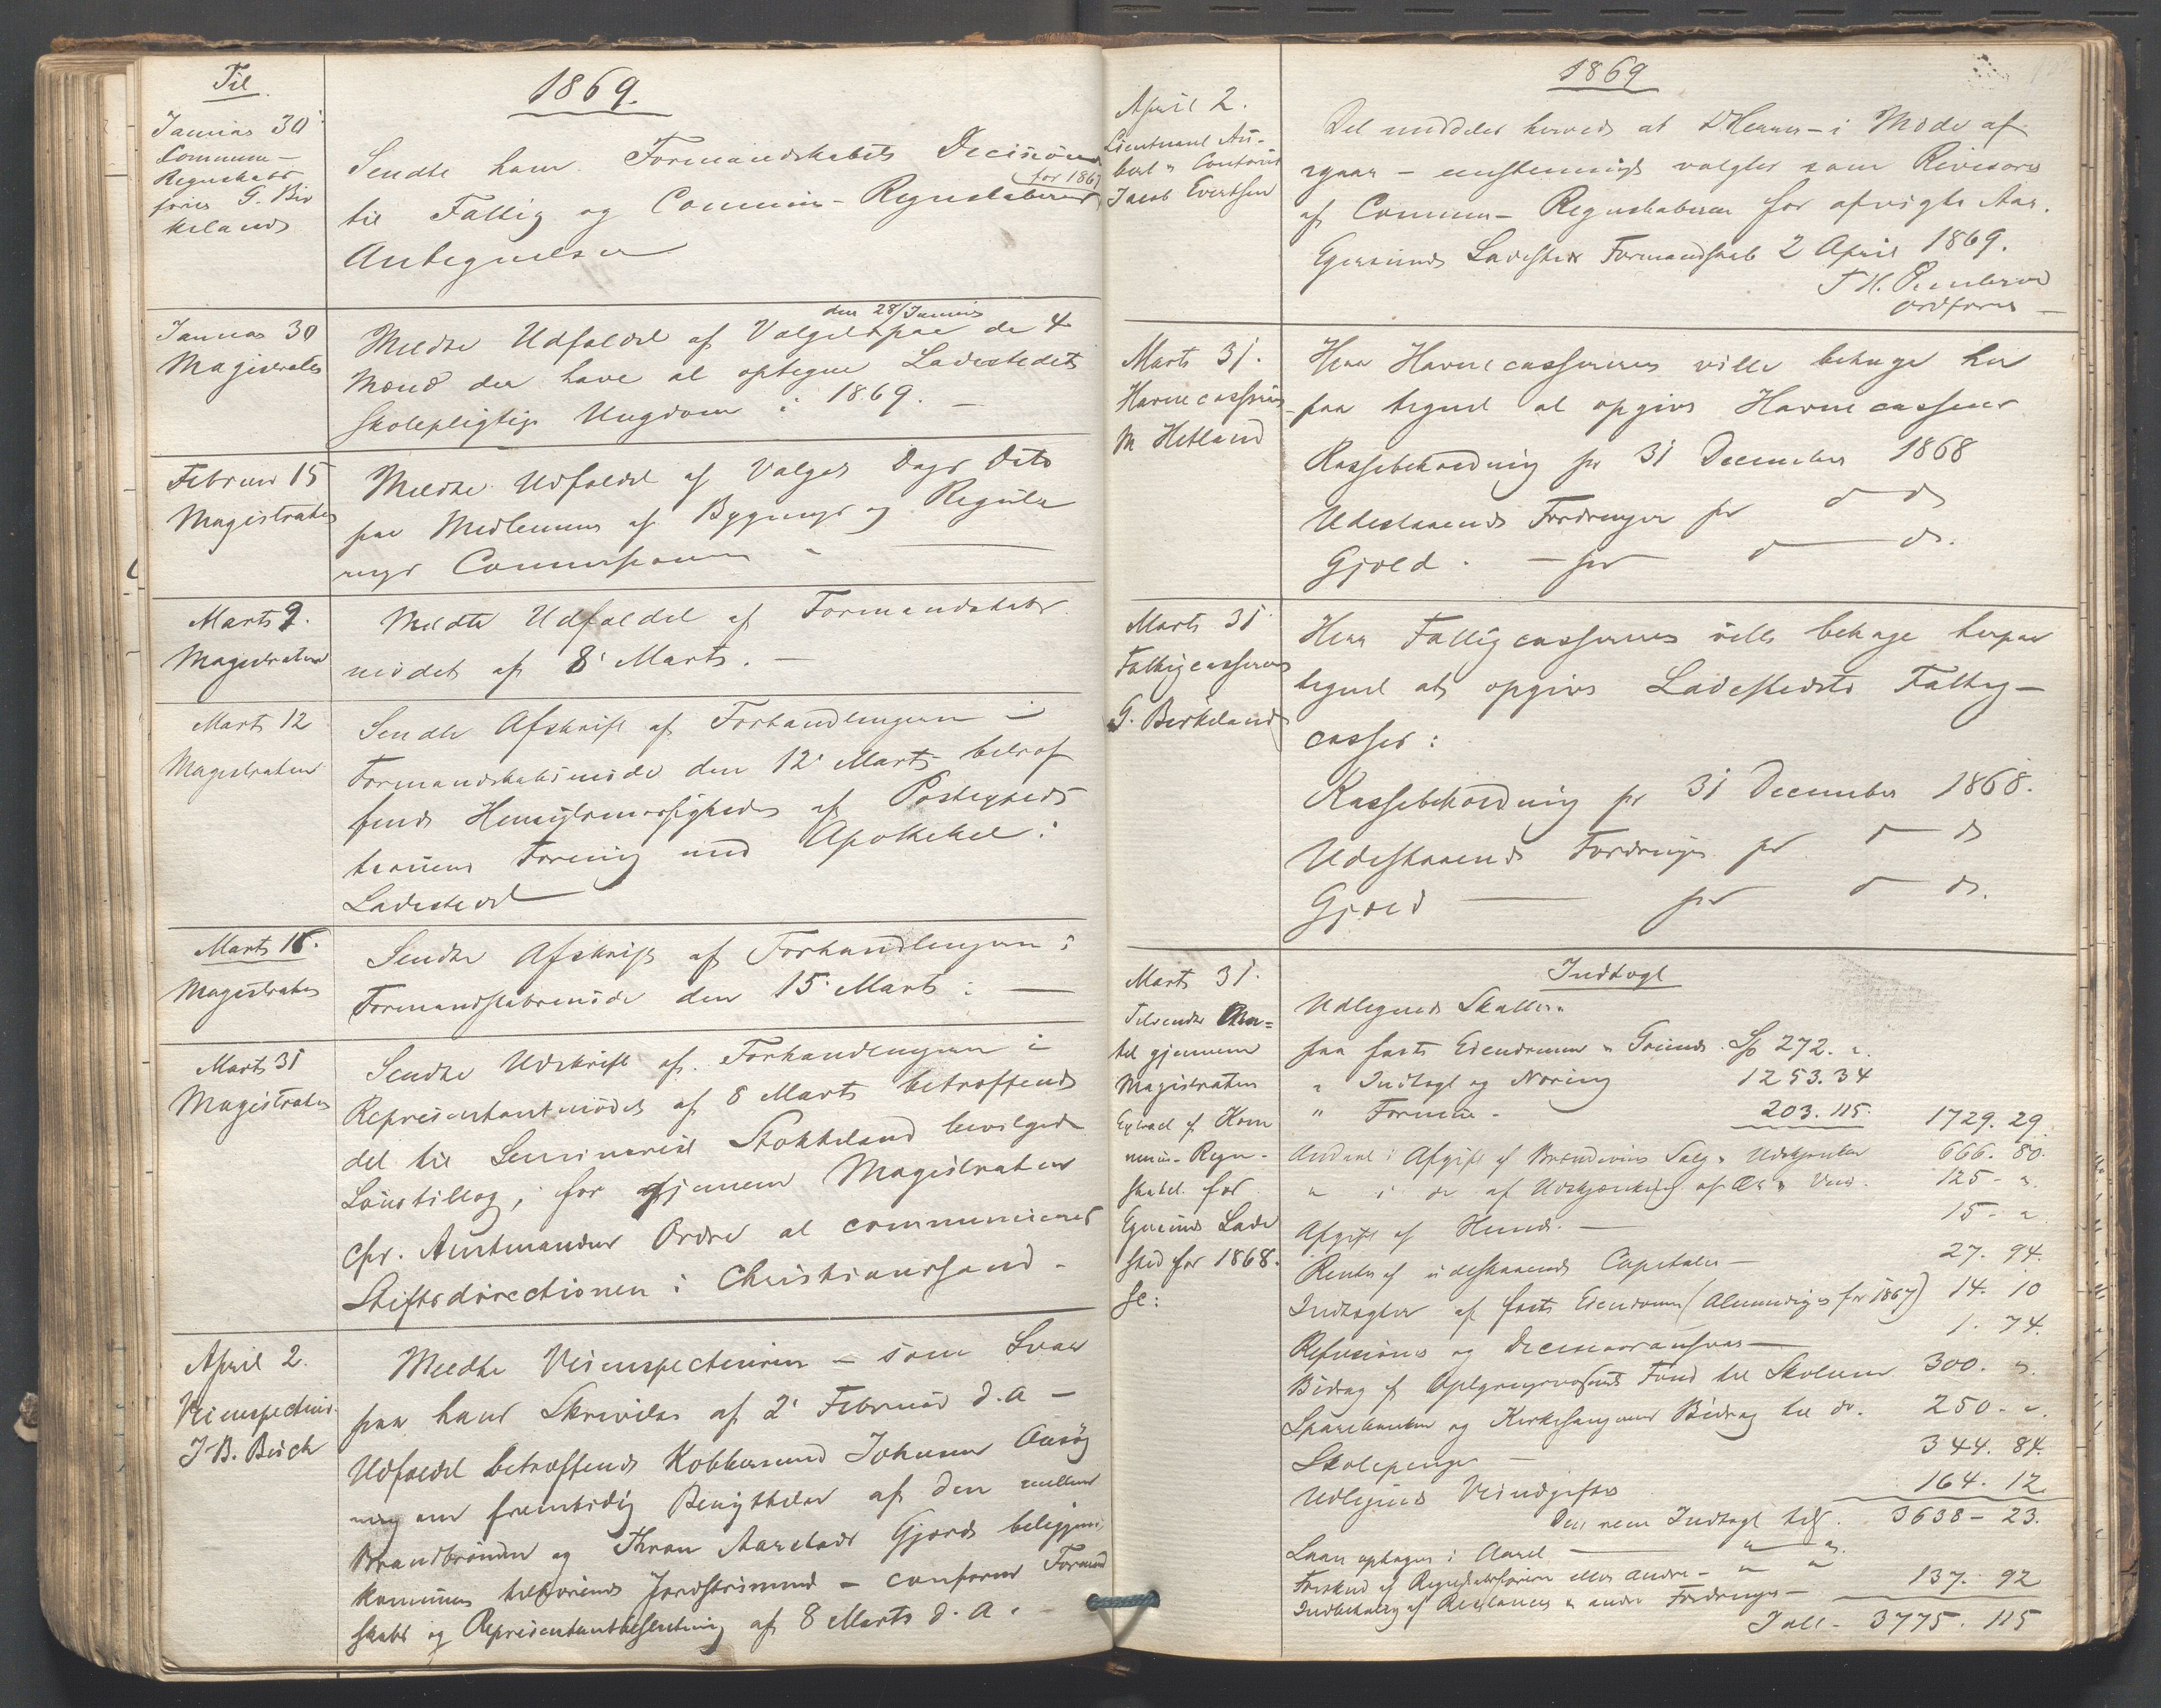 Til
1869.
Januar 30
Commune-
Regnskabs
fører G. Bir
keland
Sendte ham Formandskabets Decision
til Fattig og Commune-Regnskabernes
for 1867
Antegnelser
Januar 30
Magistraten
Meldte Udfaldet af Valget paa de 4
den 28/Januar
Mænd der have at optegne Ladestedets
skolepligtige Ungdom i 1869. –
Februar 15
Magistraten
Meldte Udfaldet af Valget Dags Dato
paa Medlemmer af Bygnings og Regule
rings Commissionen
Marts 9.
Magistraten
Meldte Udfaldet af Formandskabs
mødet af 8 Marts. –
Marts 12
Magistraten
Sendte Afskrift af Forhandlingerne i
Formandskabsmøde den 12 Marts betræf
fende Hensigtsmæssigheden af Postexpedi
tionens Forening med Apotheket i
Ladestedet
Marts 16.
Magistraten
Sendte Afskrift af Forhandlingerne i
Formandskabsmøde den 15 Marts: –
Marts 31
Magistraten
Sendte Udskrift af Forhandlingerne i
Representantmødet af 8 Marts betræffende
det til Seminarist Stokkeland bevilgede
Lønstillæg, for gjennem Magistraten
cfr. Amtmandens Ordre at communiceres
Stiftsdirectionen i Christianssand. –
April 2.
Veiinspecteur
J. B. Birch
Meldte Veiinspecteuren – som Svar
paa hans Skrivelse af 2 Februar d. A –
Udfaldet betræffende Kobbersmed Johnsens Ansøg
ning om fremtidig Benyttelse af den mellem
Brandbrønden og Thran Aarstads Gjerde beliggende
Kommunen tilhørende Jordstrimmel – conform Formand
skabs og Representantbeslutning af 8 Marts d. A.
1869
April 2.
Lieutnant Au-
bert & Contorist
Jacob Evertsen
Det meddeles herved at D'Herrer – i Møde af
igaar – enstemmigt valgtes som Revisorer
af Commune-Regnskaberne for afvigte Aar.
Egersunds Ladesteds Formandskab 2 April 1869.
T H.
Ordfører –
Marts 31.
Havnecasserer
M Hetland
Herr Havnecassereren ville behage her
paa tegnet at opgive Havnecassens
Kassebeholdning pr 31 December 1868
Udestaaende Fordringer pr do do
Gjæld. – pr do do.
Marts 31
Fattigcasserer
G. Birkeland
Herr Fattigcassereren ville behage herpaa
tegnet at opgive Ladestedets Fattig-
casses:
Kassebeholdning pr 31 December 1868.
Udestaaende Fordringer pr do do
Gjæld – pr do do.
Marts 31.
Tilsendte Am-
tet gjennem
Magistraten
Extract af Kom
mune-Regn-
skabet for
Egersund Lade
sted for 1868.
Se:
Indtægt
Udlignede Skatter:
paa faste Eiendomme & Grunde. Sp 272. "
" Indtægt og Næring 1253. 34
" Formue – 203. 115. 1729. 29.
Andeel i Afgift af Brændevins Salg & Udskjænken 666. 80.
" i do af Udskjænkning af Øl & Viin. 125 – ".
Afgift af Hunde. – 15 – "
Renter af udestaaende Capitaler – 27. 94.
Indtægter af faste Eiendomme (Almindinger for 1867) 14. 10
Refusioner og Decisionsansvar – 1. 74.
Bidrag af Oplysningsvæsenets Fond til Skolerne 300. ".
Sparebanken og Kirkesangerens Bidrag til do. 250 – ".
Skolepenge – 344. 84.
Udlignede Veiudgifter 164. 12.
Den rene Indtægt bliver. 3638 – 23.
Laan optagne i Aaret – " ".
Forskud af Regnskabsføreren eller andre – " "
Indbetaling af Restancer & andre Fordringer – 137. 92
Ialt – 3775. 115